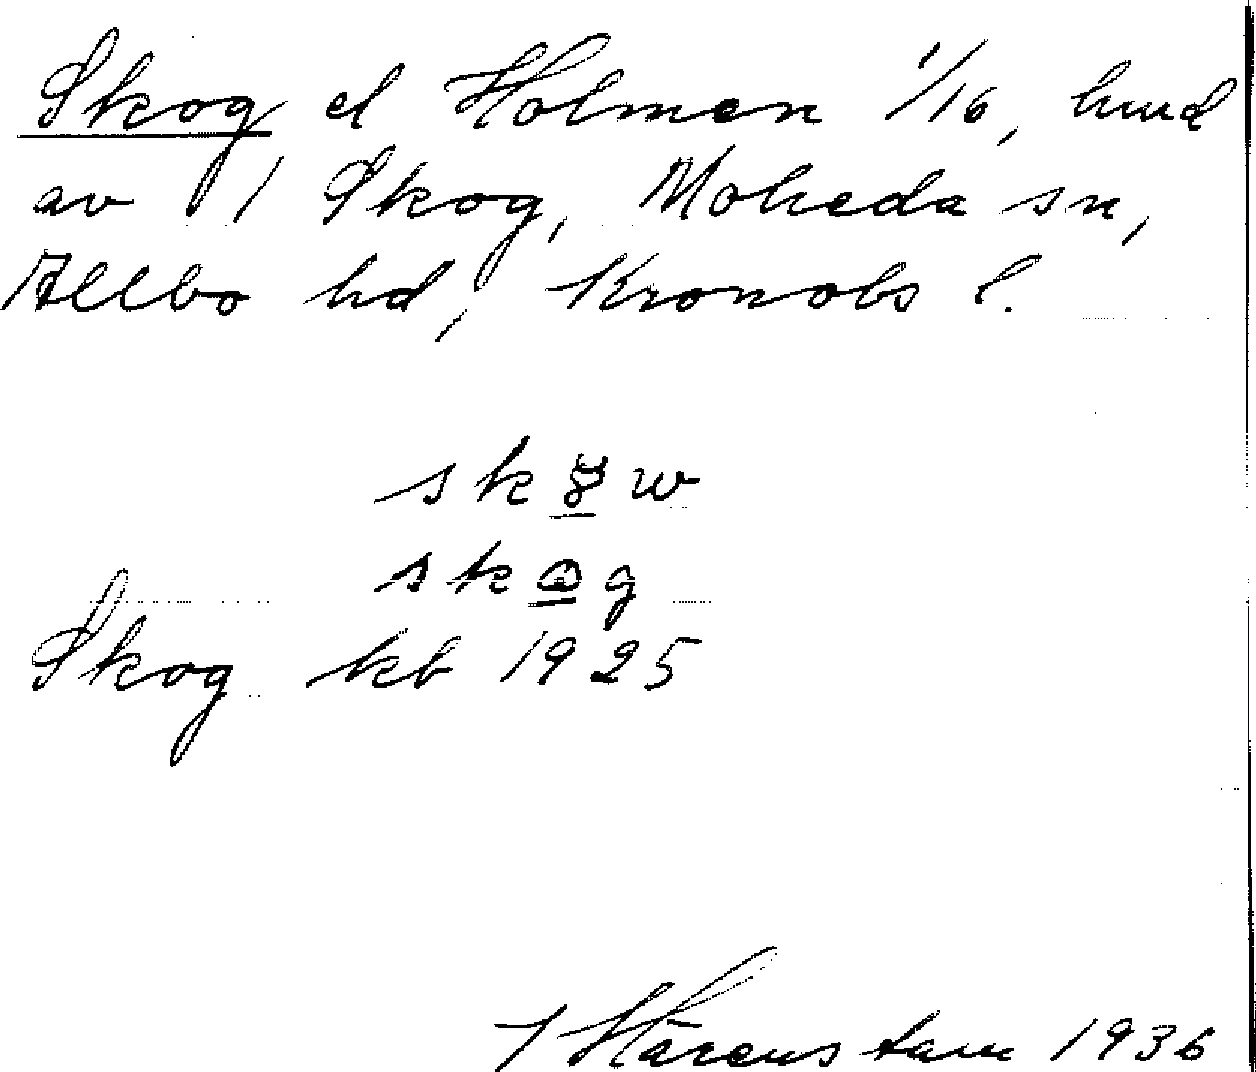 Skog el Holmen 1/16, hmd
av 1 Skog, Moheda sn,
Allbo hd, Kronobs l.
Skog kb 1925
Härenstam 1936